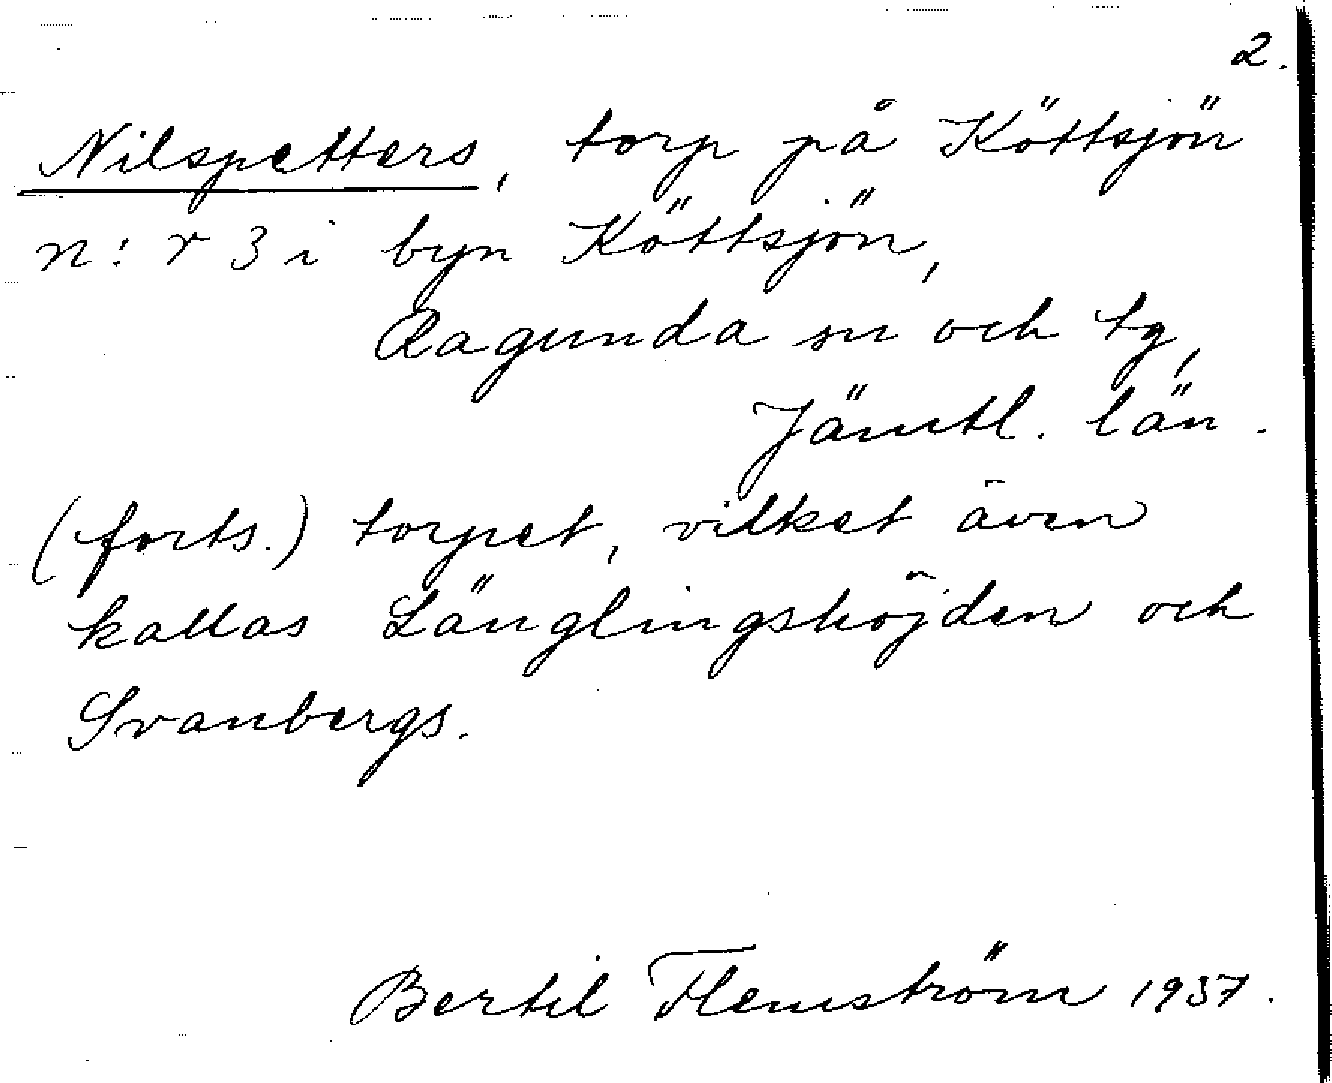 2.
Nilspetters, torp på Köttsjön
n:r 3 i byn Köttsjön,
Ragunda sn och tg,
Jämtl. län.
(forts.) torpet, vilket även
kallas Länglingshöjden och
Svanbergs.
Bertil Flemström 1937.